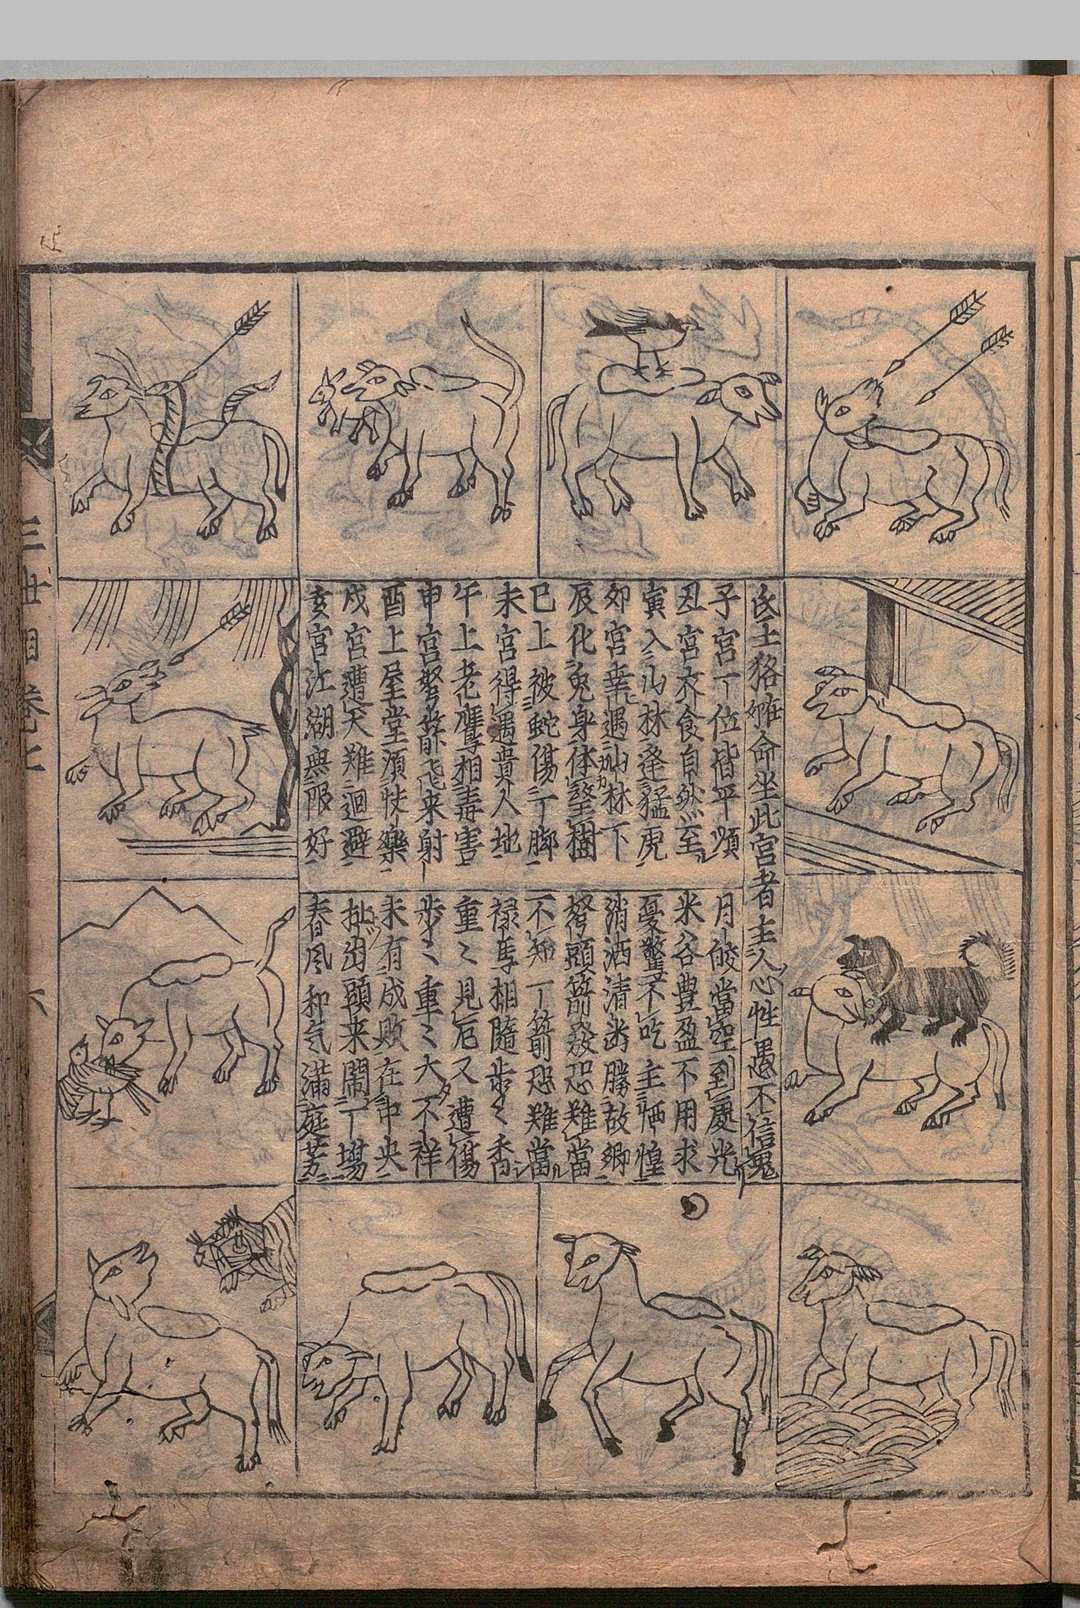 氐土狢 命坐此宮者主人心性愚不信鬼
子宮一位皆平順 月皎當空到處光
丑宮衣食自然至 米谷豊盈不用求
寅入山林逢猛虎 憂驚不吃主恓惶
卯宮幸遇山林下 消洒清出勝故郷
辰化兎身体 樹 弩頭箭發恐難當
巳上被蛇傷一脚 不知一箭恐難當
未宮得遇貴人地 禄馬相隨歩〻香
午上老鷹 相毒害 重〻見厄又遭傷
申宮弩箭飛来射 歩〻重〻大不祥
酉上屋堂須 樂 未有成敗在中央
戌宮遭天難迴避 出頭来閙一場
亥宮江湖無限好 春風和气滿庭芳
三世相 巻上
六